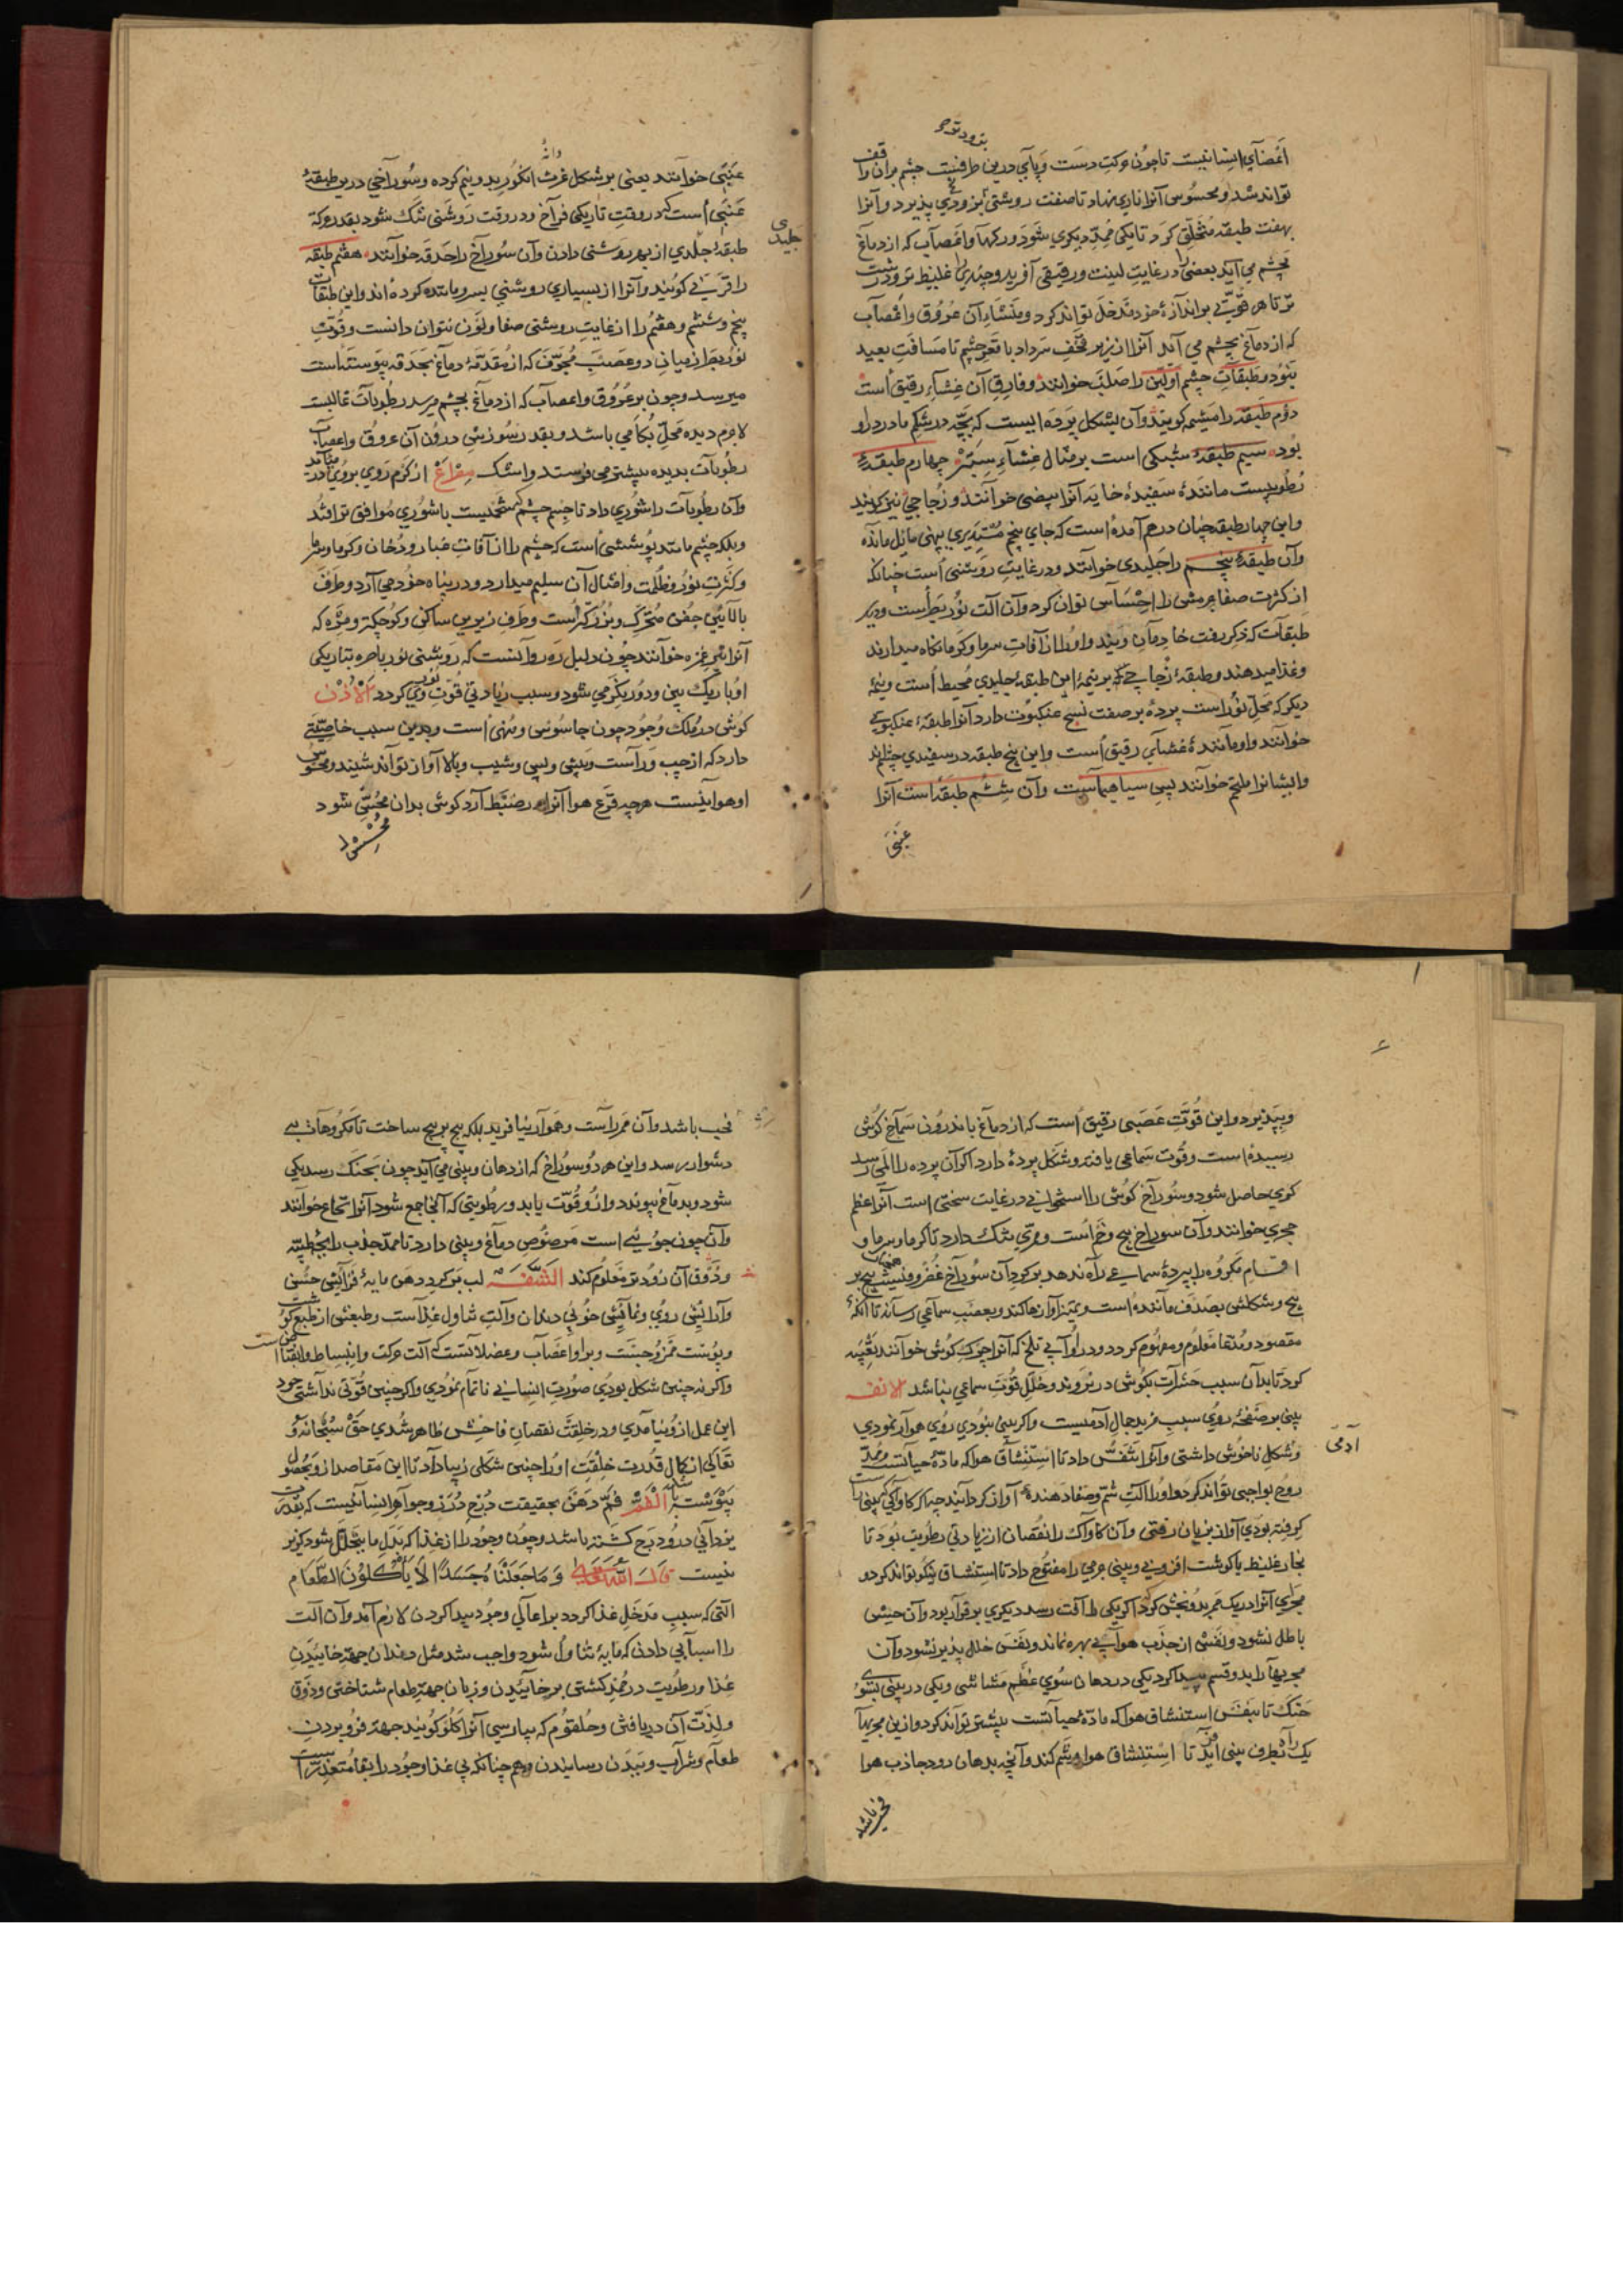 اعضای انسانیست تا چون حرکت دست و پای درین طرفیست چشم بران واقف
تواند شد و محسوس آنرا ناری نهاد تا صفت روشنی بزودی پذیرد و آنرا
بهفت طبقه متخلق کرد تا یکی ممد دیگری شود و رکها و اعصاب که از دماغ
بچشم می آید بعضی را در غایت لینت و رقیقی آفرید و چندی را غلیظ تر و درشت
تر تا هر قوتی بر اندازهٔ خود مدخل تواند کرد و منشاء آن عروق و اعصاب
که از دماغ بچشم می آید آنرا از زیر قحف سر داد با قعر چشم تا مسافت بعید
نبود و طبقات چشم اولین را صلب خوانند و فارق آن غشاء رقیق است
دوم طبقه را مشیمه کویند و آن بشکل پرده ایست که بچه در شکم مادر درو
بود سیم طبقهٔ شبکی است بر مثال غشاء ستبر چهارم طبقهٔ
رطوبیست مانندهٔ سفیدهٔ خایه آنرا بیضی خوانند و زجاجی نیز کویند
و این چهار طبقه چنان درهم آمده است که جای پنجم مستدیری بپهنی مایل مانده
وآن طبقهٔ پنجم را جلیدی خوانند و در غایت روشنی است چنانکه
از کثرت صفا هر مشی را احساس توان کرد و آن آلت نور بصر است و دیگر
طبقات که ذکر رفت خادمان ویند و او را از آفات سرما و کرما نکاه میدارند
و غذا میدهند و طبقهٔ زجاجی که بر نیمهٔ این طبقهٔ جلیدی محیط است و نیمهٔ
دیکر که محل نور است پردهٔ بر صفت نسج عنکبوت دارد آنرا طبقهٔ عنکبوتی
خوانند و او مانندهٔ غشای رقیق است و این پنج طبقه در سفیدی چشم اند
و ایشانرا ملتحم خوانند پس سیاهیهاست وآن ششم طبقه است آنرا
عنبی
عنبی خوانند یعنی بر شکل غرب انکورید و نیم کرده و سوراخی درین طبقهٔ
دانهٔ
عنبی است که در وقت تاریکی فراخ و در وقت روشنی تنک شود بقدر حرکة
طبقهٔ جلدی از بهر روشنی دادن وآن سوراخ را حدقه خوانند هفتم طبقه
جلیدی
را قرنی کویند و آنرا از بسیاری روشنی بسرو مانده کرده اند و این طبقات
پنجم و ششم و هفتم را از غایت روشنی صفا و لون نتوان دانست و قوت
نور بصر از میان دو عصب مجوف که از مقدمهٔ دماغ بحدقه پیوسته است
میرسد و چون بر عروق و اعصاب که از دماغ بچشم میرسد رطوبات غالبست
لاجرم دیده محل بکا می باشد و بقدر سوزش درون آن عروق و اعصاب
رطوبات بدیده بیشتر می فرستد و اشک از کرم روی بروی در میآید
وآن رطوبات را شوری داد تا جسم چشم که شحمیست با شوری موافق تر افتد
و پلک چشم مانند پوششی است که چشم را از آفات غبار و دخان و کرما و سرما
و کثرت نور و ظلمت و امثال آن سلیم میدارد و در پناه خود می آرد و طرف
بالایین جفن متحرک و بزرکتر است و طرف زیرین ساکن و کوچکتر و مژه که
آنرا تیر غمزه خوانند چون دلیل ره روانست که روشنی نور باصره بتاریکی
او باریک بین و دوربین کر می شود و سبب زیادتی قوت نور وی کردد الاذن
کوش در ملک وجود چون جاسوسی و منهی است و بدین سبب خاصیتی
دارد که از چپ و راست و پیش و پس و شیب و بالا آواز تواند شنید و محسوس
او هواییست هرچه قرع هوا آنرا در ضبط آرد کوش بدان محسس شود
و بپذیرد و این قوت عصبی رقیق است که از دماغ باندرون سماخ کوش
رسیده است و قوت سماعی یافته و شکل پردهٔ دارد اکر آن پرده را المی رسد
کری حاصل شود و سوراخ کوش را استخوانی در غایت سختی است آنرا عظم
حجری خوانند وآن سوراخ پیچ و خم است و ممری تنک دارد تا کرما و سرما و
اقسام مکروه را بپردهٔ سماعی راه ندهد بر کرد آن سوراخ غضروفیست پیچ بر
پیچ و شکلش بصدف مانند است و تمیز آوازها کند و بعصب سماعی رساند تا آنکهٔ
مقصود و مدعا معلوم و مفهوم کردد و در او آبی تلخ که آنرا چرک کوش خوانند تعبیه
کرد تا بدان سبب حشرات بکوش در نروند و خلل قوت سماعی نباشد الانف
بینی بر صفحهٔ روی سبب مزید جمال آدمیست و اکر بینی نبودی روی هموار نمودی
آدمی
و شکل ناخوش داشتی و آنرا تنفس داد تا استنشاق هوا که مادهٔ حیاتست و ممد
روح بواجبی تواند کرد و او را آلت شم و صفا دهندهٔ آواز کردانید چه اکر کاواکی بینی
کرفته بودی آواز بزیان رفتی وآن کاواک را نقصان از زیادتی رطوبت بود تا
بخار غلیظ یا کوشت افزونی و بینی جرمی را مفتوح داد تا استنشاق نیکو تواند کرد و
مجرای آنرا در یک ممر بدو بخش کرد تا اکر یکی را آفت رسد دیکری بر قرار بود وآن حس
باطل نشود و نفس از جذب هوا بی بهره نماند و نفس خلل پذیر نشود وآن
مجریها را بدو قسم پیدا کرد یکی در دهان سوی عظم مشاشی و یکی در بینی بسوی
حنک تا بنفس استنشاق هوا که مادهٔ حیاتست بیشتر تواند کرد و ازین مجریها
یک راه بطرف بینی آید تا استنشاق هوا و شم کند و آنچه بدهان رود جاذب هوا
نخیب باشد وآن ممر راست و هموار نیافرید بلکه پیچ بر پیچ ساخت تا مکروهات بی
دشوار رسد و این هر دو سوراخ که از دهان و بینی می آید چون بحنک رسد یکی
شود و بدماغ پیوندد و ازو قوت یابد و رطوبتی که آنجا جمع شود آنرا نخاع خوانند
وآن چون جویی است مرصوص دماغ و بینی دارد تا ممد جذب رایحهٔ طیبه
و ذوق آن زودتر معلوم کند الشفه لب بر کرد دهن مایهٔ فزایش حسن
و آرایش روی و نمایش خوبی دندان و آلت تناول غذاست و طبعش از طبع کوشت
و پوست ممزوجست و برو اعصاب و عضلاتست که آلت حرکت و انبساط و انقباض است
و اکر نه چنین شکل بودی صورت انسانی ناتمام نمودی و اکر چنین قوتی نداشتی خود
این عمل ازو نیامدی و در خلقت نقصان فاحش ظاهر شدی حق سبحانه و
تعالی از کمال قدرت خلقت او را چنین شکلی زیبا داد تا این مقاصد ازو بحصول
پیوست الفم فم دهن بحقیقت درج درر و جواهر انسانیست که بقدرت
یزدانی درو درج کشته باشد و چون وجود را از غذا که بدل ما یتحلل شود کزیر
نیست قال الله تعالی وَمَا جَعَلْنَاهُمْ جَسَدًا لَا يَأْكُلُونَ الطَّعَامَ
التی که سبب مدخل غذا کردد بر اعالی وجود پیدا کردن لازم آمد وآن آلت
را اسبابی دادن که مایهٔ تناول شود واجب شد مثل دندان جهة خاییدن
غذا و رطوبت در مضغ کشتی بر خاییدن و زبان جهة طعام شناختن و ذوق
و لذت آن دریافتن و حلقوم که بپارسی آنرا کلو کویند جهة فرو بردن
طعام و شراب و ببدن رسانیدن و هم چنانکه بی غذا وجود را بقا متعذر است